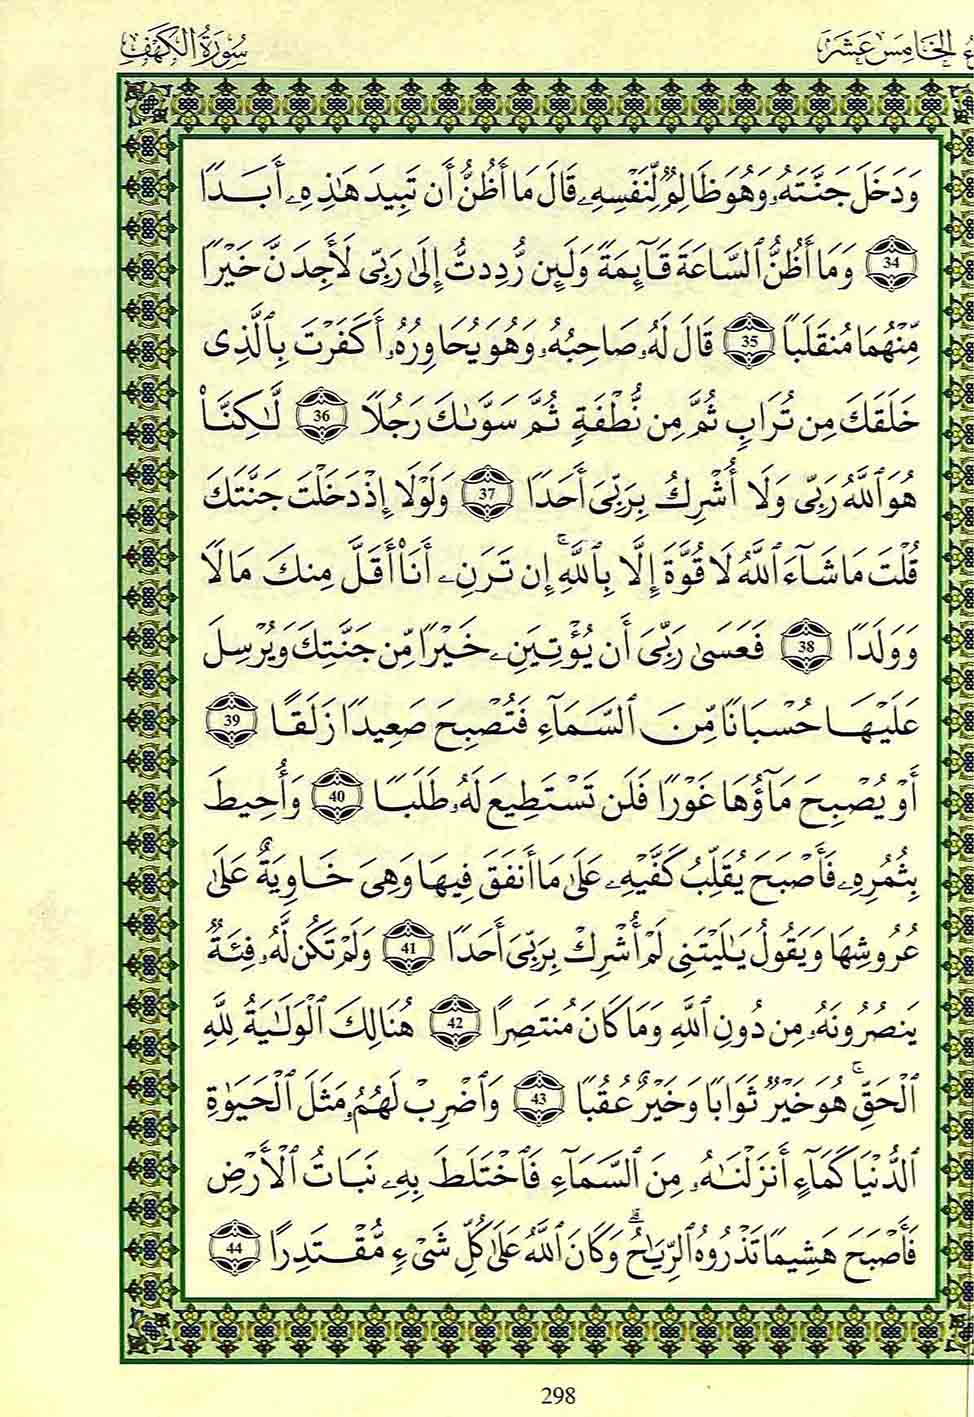 الخَامِس عَشَرَ
سُورَةُ الكَهْفِ
وَدَخَلَ جَنَّتَهُۥ وَهُوَ ظَالِمٌ لِّنَفْسِهِۦ قَالَ مَا أَظُنُّ أَن تَبِيدَ هَٰذِهِۦ أَبَدًا
34 وَمَا أَظُنُّ ٱلسَّاعَةَ قَآئِمَةً وَلَئِن رُّدِدتُّ إِلَىٰ رَبِّى لَأَجِدَنَّ خَيْرًا
مِّنْهُمَا مُنقَلَبًا 35 قَالَ لَهُۥ صَاحِبُهُۥ وَهُوَ يُحَاوِرُهُۥ أَكَفَرْتَ بِٱلَّذِى
خَلَقَكَ مِن تُرَابٍ ثُمَّ مِن نُّطْفَةٍ ثُمَّ سَوَّىٰكَ رَجُلًا 36 لَّٰكِنَّا۠
هُوَ ٱللَّهُ رَبِّى وَلَا أُشْرِكُ بِرَبِّىَ أَحَدًا 37 وَلَوْلَا إِذْ دَخَلْتَ جَنَّتَكَ
قُلْتَ مَا شَآءَ ٱللَّهُ لَا قُوَّةَ إِلَّا بِٱللَّهِ ۚ إِن تَرَنِۦ أَنَا۠ أَقَلَّ مِنكَ مَالًا
وَوَلَدًا 38 فَعَسَىٰ رَبِّىَ أَن يُؤْتِيَنِۦ خَيْرًا مِّن جَنَّتِكَ وَيُرْسِلَ
عَلَيْهَا حُسْبَانًا مِّنَ ٱلسَّمَآءِ فَتُصْبِحَ صَعِيدًا زَلَقًا 39
أَوْ يُصْبِحَ مَآؤُهَا غَوْرًا فَلَن تَسْتَطِيعَ لَهُۥ طَلَبًا 40 وَأُحِيطَ
بِثُمُرِهِۦ فَأَصْبَحَ يُقَلِّبُ كَفَّيْهِۦ عَلَىٰ مَا أَنفَقَ فِيهَا وَهِىَ خَاوِيَةٌ عَلَىٰ
عُرُوشِهَا وَيَقُولُ يَٰلَيْتَنِى لَمْ أُشْرِكْ بِرَبِّىَ أَحَدًا 41 وَلَمْ تَكُن لَّهُۥ فِئَةٌ
يَنصُرُونَهُۥ مِن دُونِ ٱللَّهِ وَمَا كَانَ مُنتَصِرًا 42 هُنَالِكَ ٱلْوَلَٰيَةُ لِلَّهِ
ٱلْحَقِّ ۚ هُوَ خَيْرٌ ثَوَابًا وَخَيْرٌ عُقُبًا 43 وَٱضْرِبْ لَهُمُۥ مَثَلَ ٱلْحَيَوٰةِ
ٱلدُّنْيَا كَمَآءٍ أَنزَلْنَٰهُۥ مِنَ ٱلسَّمَآءِ فَٱخْتَلَطَ بِهِۦ نَبَاتُ ٱلْأَرْضِ
فَأَصْبَحَ هَشِيمًا تَذْرُوهُ ٱلرِّيَٰحُ ۗ وَكَانَ ٱللَّهُ عَلَىٰ كُلِّ شَىْءٍ مُّقْتَدِرًا 44
298